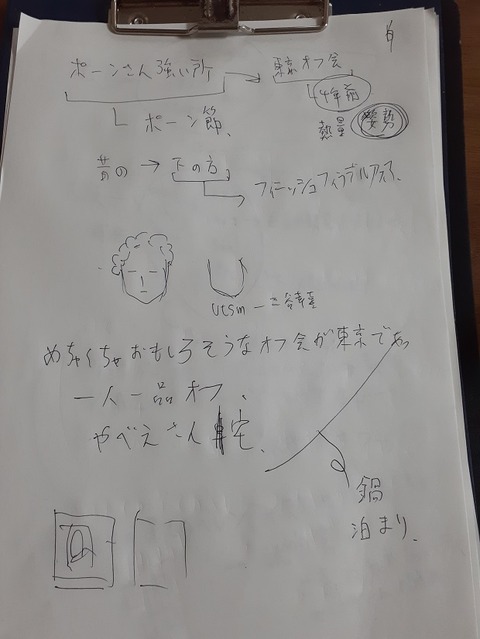 ポーンさん強い所
東京オフ会
4年前
ポーン節、
熱量
姿勢
昔の → 下の方
フィニッシュフィラデルフィア、
めちゃくちゃおもしろそうなオフ会が東京であ
一人一品オフ、
やべえさん宅、
鍋
泊まり、